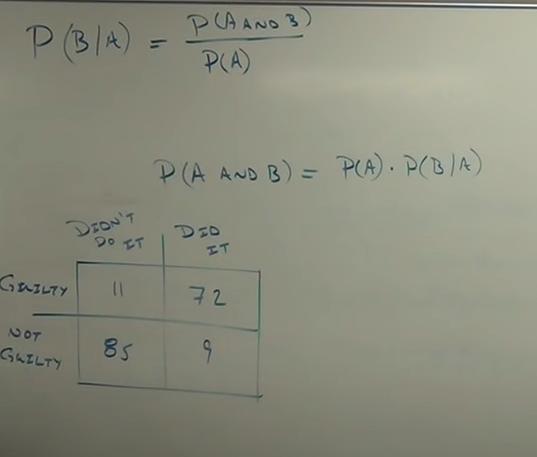 P(B/A) = P(A AND B)
P(A)
P(A AND B) = P(A) · P(B/A)
DIDN'T DO IT
DID IT
GUILTY 11 72
NOT GUILTY 85 9